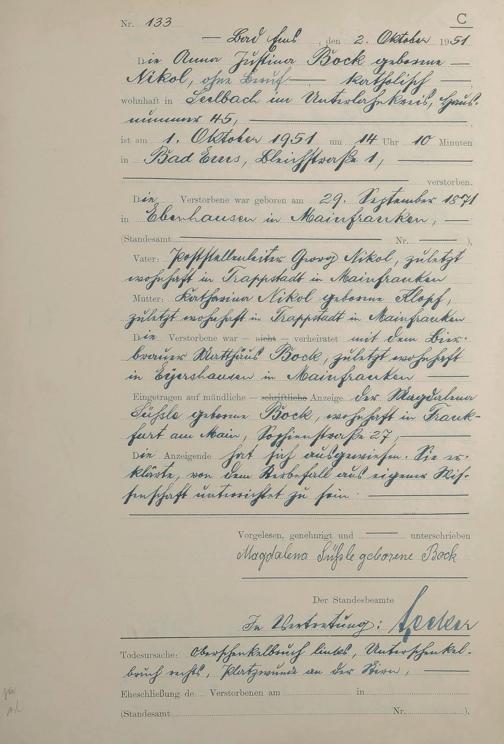 C
Nr. 133
Bad Ems, den 2. Oktober 1951
Die Anna Justina Bock geborene
Nikol, ohne Beruf — katholisch
wohnhaft in Seelbach im Unterlahnkreis, Haus-
nummer 45,
ist am 1. Oktober 1951 um 14 Uhr 10 Minuten
in Bad Ems, Bleichstraße 1,
verstorben.
Die Verstorbene war geboren am 29. September 1871
in Ebenhausen in Mainfranken,
(Standesamt Nr. ),
Vater: Poststellenleiter Georg Nikol, zuletzt
wohnhaft in Trappstadt in Mainfranken
Mutter: Katharina Nikol geborene Klopf,
zuletzt wohnhaft in Trappstadt in Mainfranken
Die Verstorbene war — nicht — verheiratet mit dem Bier-
brauer Matthäus Bock, zuletzt wohnhaft
in Eyershausen in Mainfranken
Eingetragen auf mündliche — schriftliche Anzeige der Magdalena
Süßle geborene Bock, wohnhaft in Frank-
furt am Main, Sophienstraße 27,
Die Anzeigende hat sich ausgewiesen. Sie er-
klärte, von dem Sterbefall aus eigener Wis-
senschaft unterrichtet zu sein.
Vorgelesen, genehmigt und unterschrieben
Magdalena Süßle geborene Bock
Der Standesbeamte
In Vertretung:
Todesursache: Oberschenkelbruch links, Unterschenkel-
bruch rechts, Platzwunde an der Stirn,
Eheschließung de Verstorbenen am in
(Standesamt Nr. ).